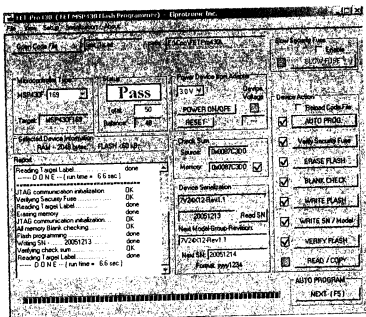 FET-Pro430 (FET MSP430 Flash Programmer) - Elprotronic Inc.
Open Code File
Microcontroller Type
MSP430F 169
Target: MSP430F169
Status
Pass
Total: 50
Balance: 48
Power Device from Adapter
3.0 V
Device Voltage
POWER ON/OFF
RESET
Enable
BLOW FUSE
Selected Device Information
RAM - 2048 bytes FLASH - 60 kB
Report
Reading Target Label done
---- D O N E -- ( run time = 6.6 sec.)
JTAG communication initialization OK
Verifying Security Fuse OK
Reading Target Label done
Erasing memory done
JTAG communication initialization OK
All memory Blank checking OK
Flash programming done
Writing SN - 20051213 done
Verifying check sum OK
Reading Target Label done
---- D O N E -- ( run time = 6.6 sec.)
Check Sum
Source: 0x0087C3D0
Memory: 0x0087C3D0
Device Serialization
7V24X12-Rev1.1
20051213 Read SN
Next Model-Group-Revision:
7V24X12-Rev1.1
Next SN: 20051214
Format: yyyy1234
Device Action
Reload Code File
AUTO PROG.
Verify Security Fuse
ERASE FLASH
BLANK CHECK
WRITE FLASH
WRITE SN / Model
VERIFY FLASH
READ / COPY
AUTO PROGRAM
NEXT (F5)